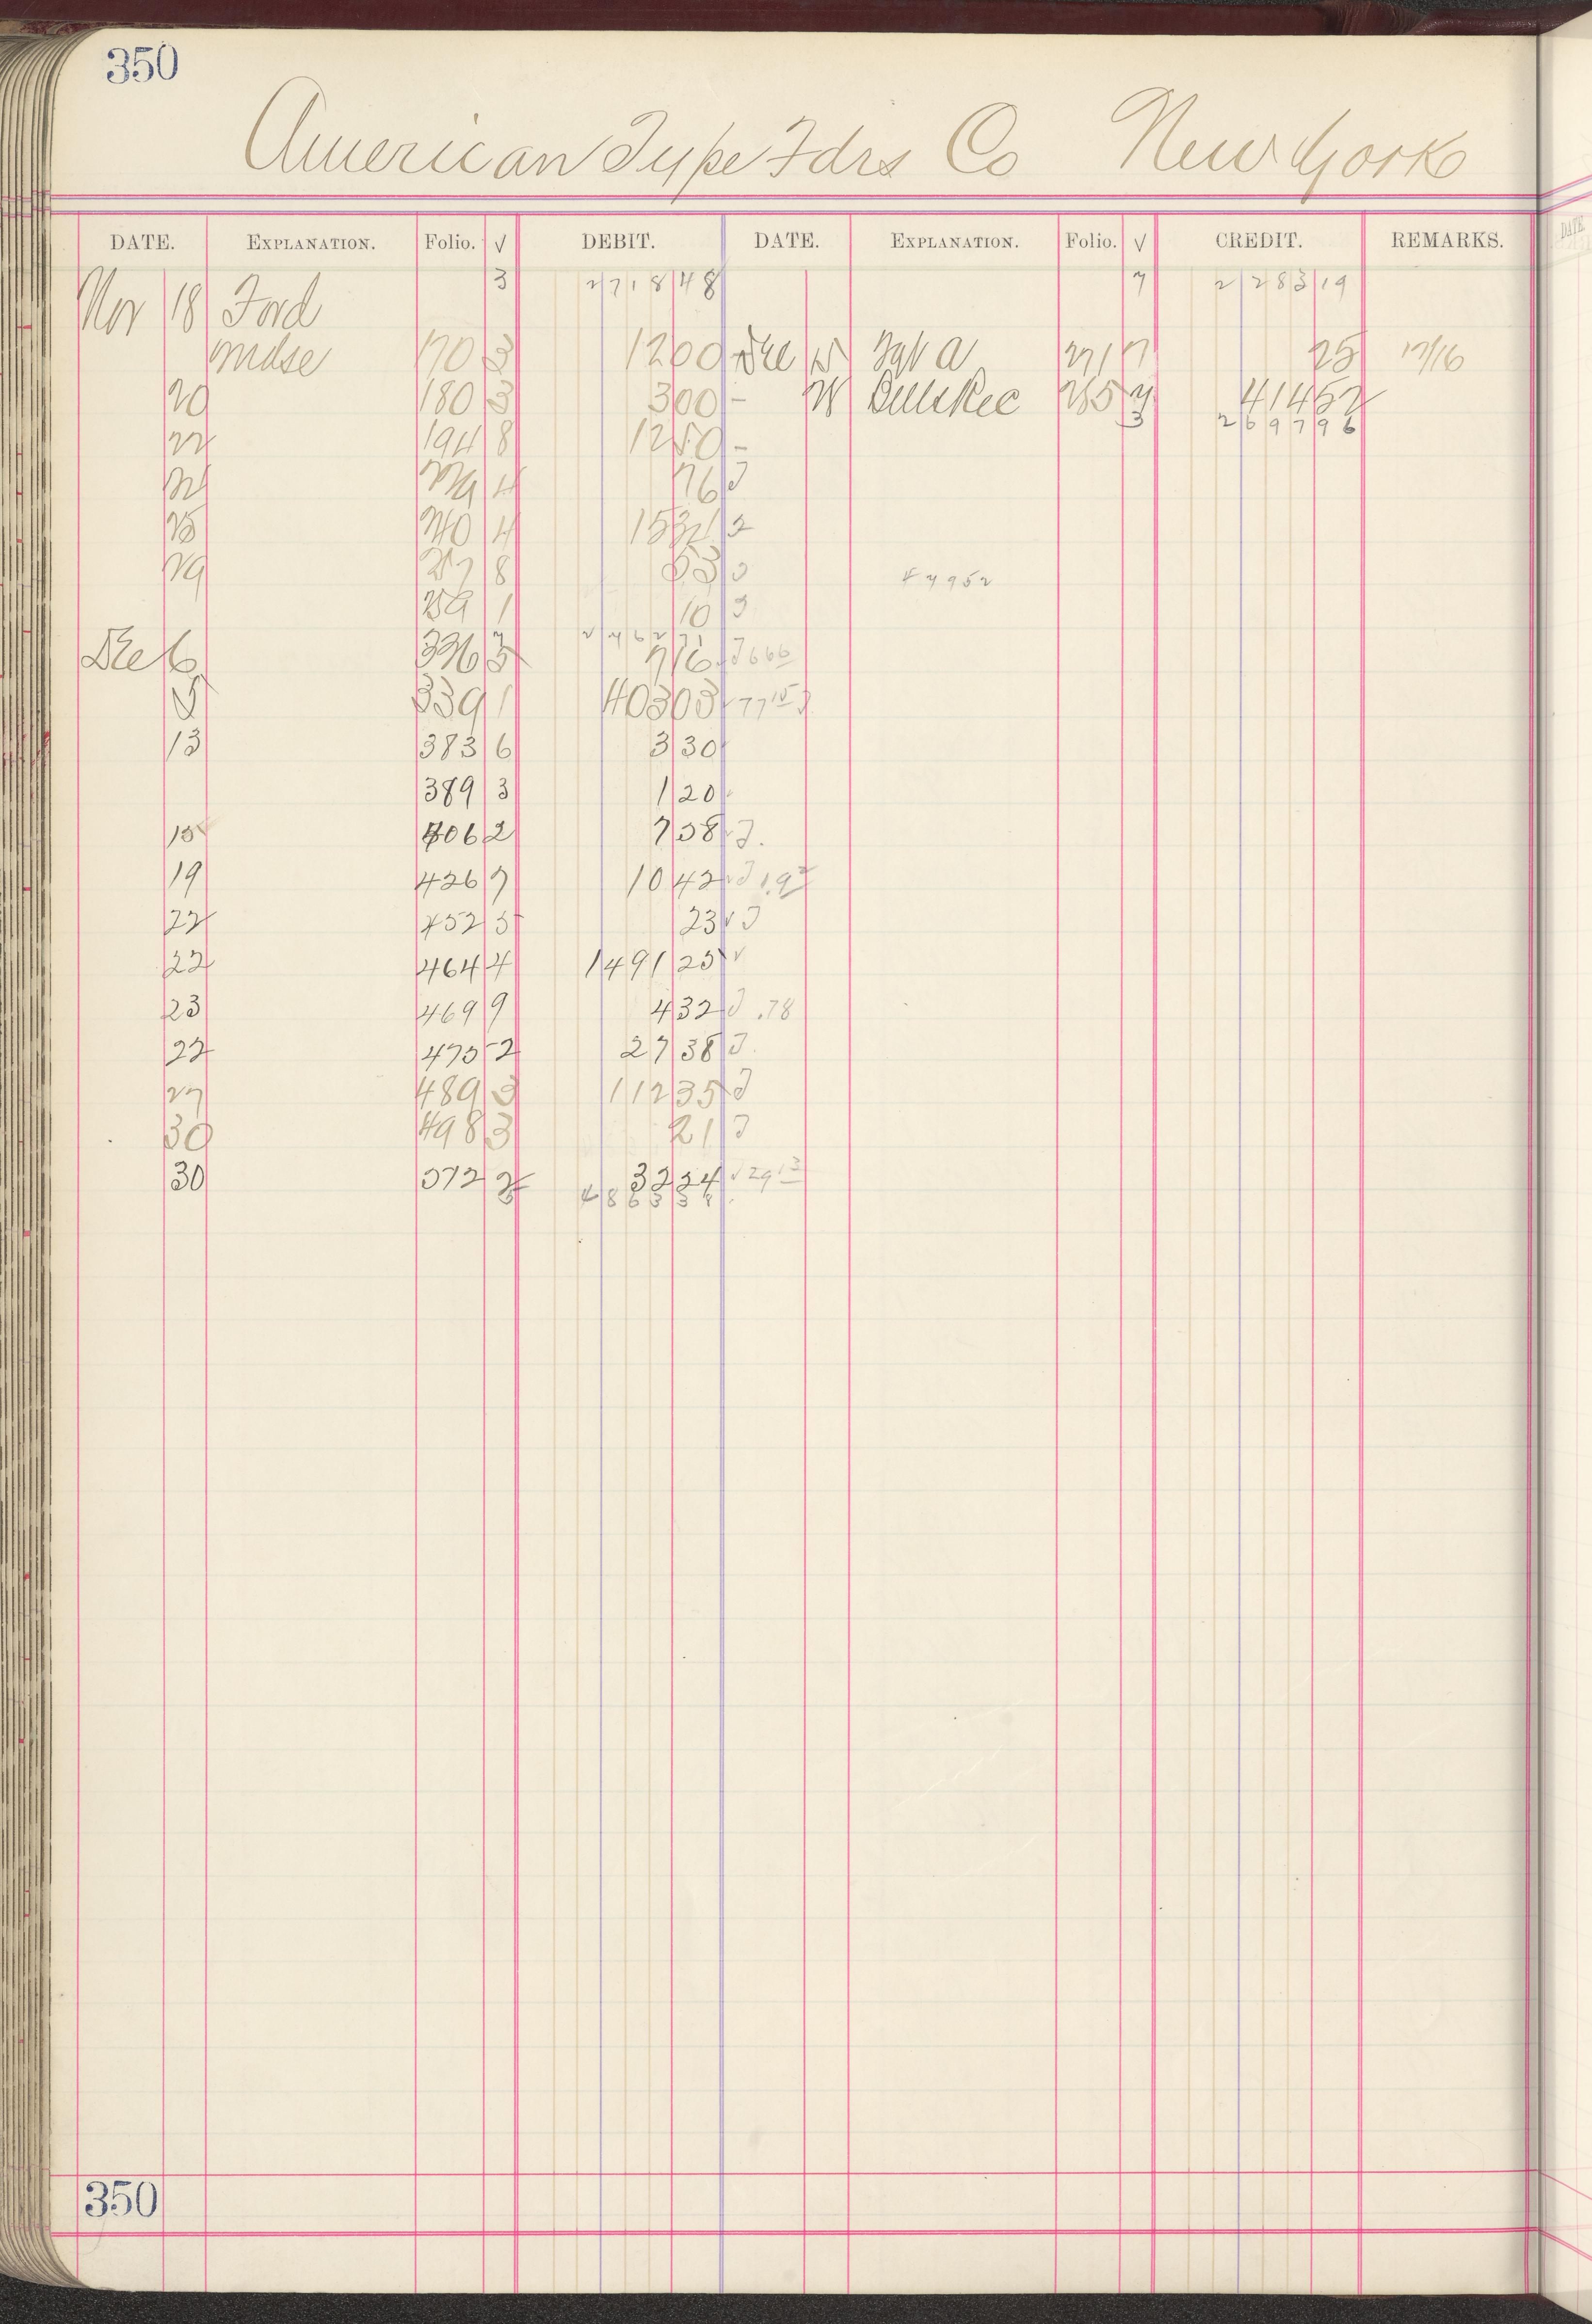 350
American Type Fdrs Co New York
DATE. EXPLANATION. Folio. √ DEBIT. DATE. EXPLANATION. Folio. √ CREDIT. REMARKS.
3 2718 48 7 2283 19
Nov 18 Ford
mdse 170 3 12 00 Dec 271 7 25 12/16
20 180 3 3 00 - Bills Rec 285 414 52
3 2697 96
22 194 8 12 50 -
4 76 J
25 240 4 15 J
29 8 83 J 4 4952
259 1 10 J
Dec 6 336 3 7 16 J 666
339 1 403 03 77 15 J
13 383 6 3 30
389 3 1 20
15 406 2 7 38 J.
19 426 7 10 42 J 1.92
22 452 5 23 √ J
22 464 4 1491 25 √
23 469 9 4 32 J .78
22 475 2 27 38 J
27 489 3 112 35 J
30 498 3 21 J
30 512 2 32 24 √ 29 13
350